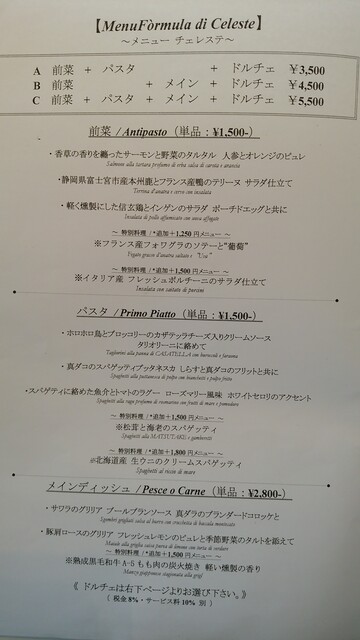 【MenuFòrmula di Celeste】
～メニュー チェレステ～
A 前菜 + パスタ + ドルチェ ￥3,500
B 前菜 + メイン + ドルチェ ￥4,500
C 前菜 + パスタ + メイン + ドルチェ ￥5,500
前菜 / Antipasto（単品：¥1,500-）
・香草の香りを纏ったサーモンと野菜のタルタル 人参とオレンジのピュレ
・静岡県富士宮市産本州鹿とフランス産鴨のテリーヌ サラダ仕立て
Terrina d'anatra e cervo con insalata
・軽く燻製にした信玄鶏とインゲンのサラダ ポーチドエッグと共に
Insalata di pollo affumicato con uova affogate
～ 特別料理 / *追加＋1,250 円メニュー ～
※フランス産フォワグラのソテーと"葡萄"
～ 特別料理 / *追加＋1,500 円メニュー ～
※イタリア産 フレッシュポルチーニのサラダ仕立て
Insalata con saltato di porcini
パスタ / Primo Piatto（単品：¥1,500-）
・ホロホロ鳥とブロッコリーのカザテッラチーズ入りクリームソース
タリオリーニに絡めて
Tagliolini alla panna di CASATELLA con broccoli e faraona
・真ダコのスパゲティプッタネスカ しらすと真ダコのフリットと共に
Spaghetti alla puttanesca di polpo con bianchetti e polpo fritto
・スパゲティに絡めた魚介とトマトのラグー ローズマリー風味 ホワイトセロリのアクセント
Spaghetti alla ragu profumo di rosmarino con frutti di mare e pomodoro
～ 特別料理 / *追加＋1,500 円メニュー ～
※松茸と海老のスパゲッティ
Spaghetti alla MATSUTAKE e gamberetti
～ 特別料理 / *追加＋1,800 円メニュー ～
※北海道産 生ウニのクリームスパゲッティ
Spaghetti al riccio di mare
メインディッシュ / Pesce o Carne（単品：¥2,800-）
・サワラのグリリア ブールブランソース 真ダラのブランダードコロッケと
・豚肩ロースのグリリア フレッシュレモンのピュレと季節野菜のタルトを添えて
～ 特別料理 / *追加＋1,500 円メニュー ～
※熟成黒毛和牛 A-5 もも肉の炭火焼き 軽い燻製の香り
Manzo giapponese stagionato alla grigl
《 ドルチェは右下ページよりお選び下さい。》
（ 税金8%・サービス料10% 別 ）